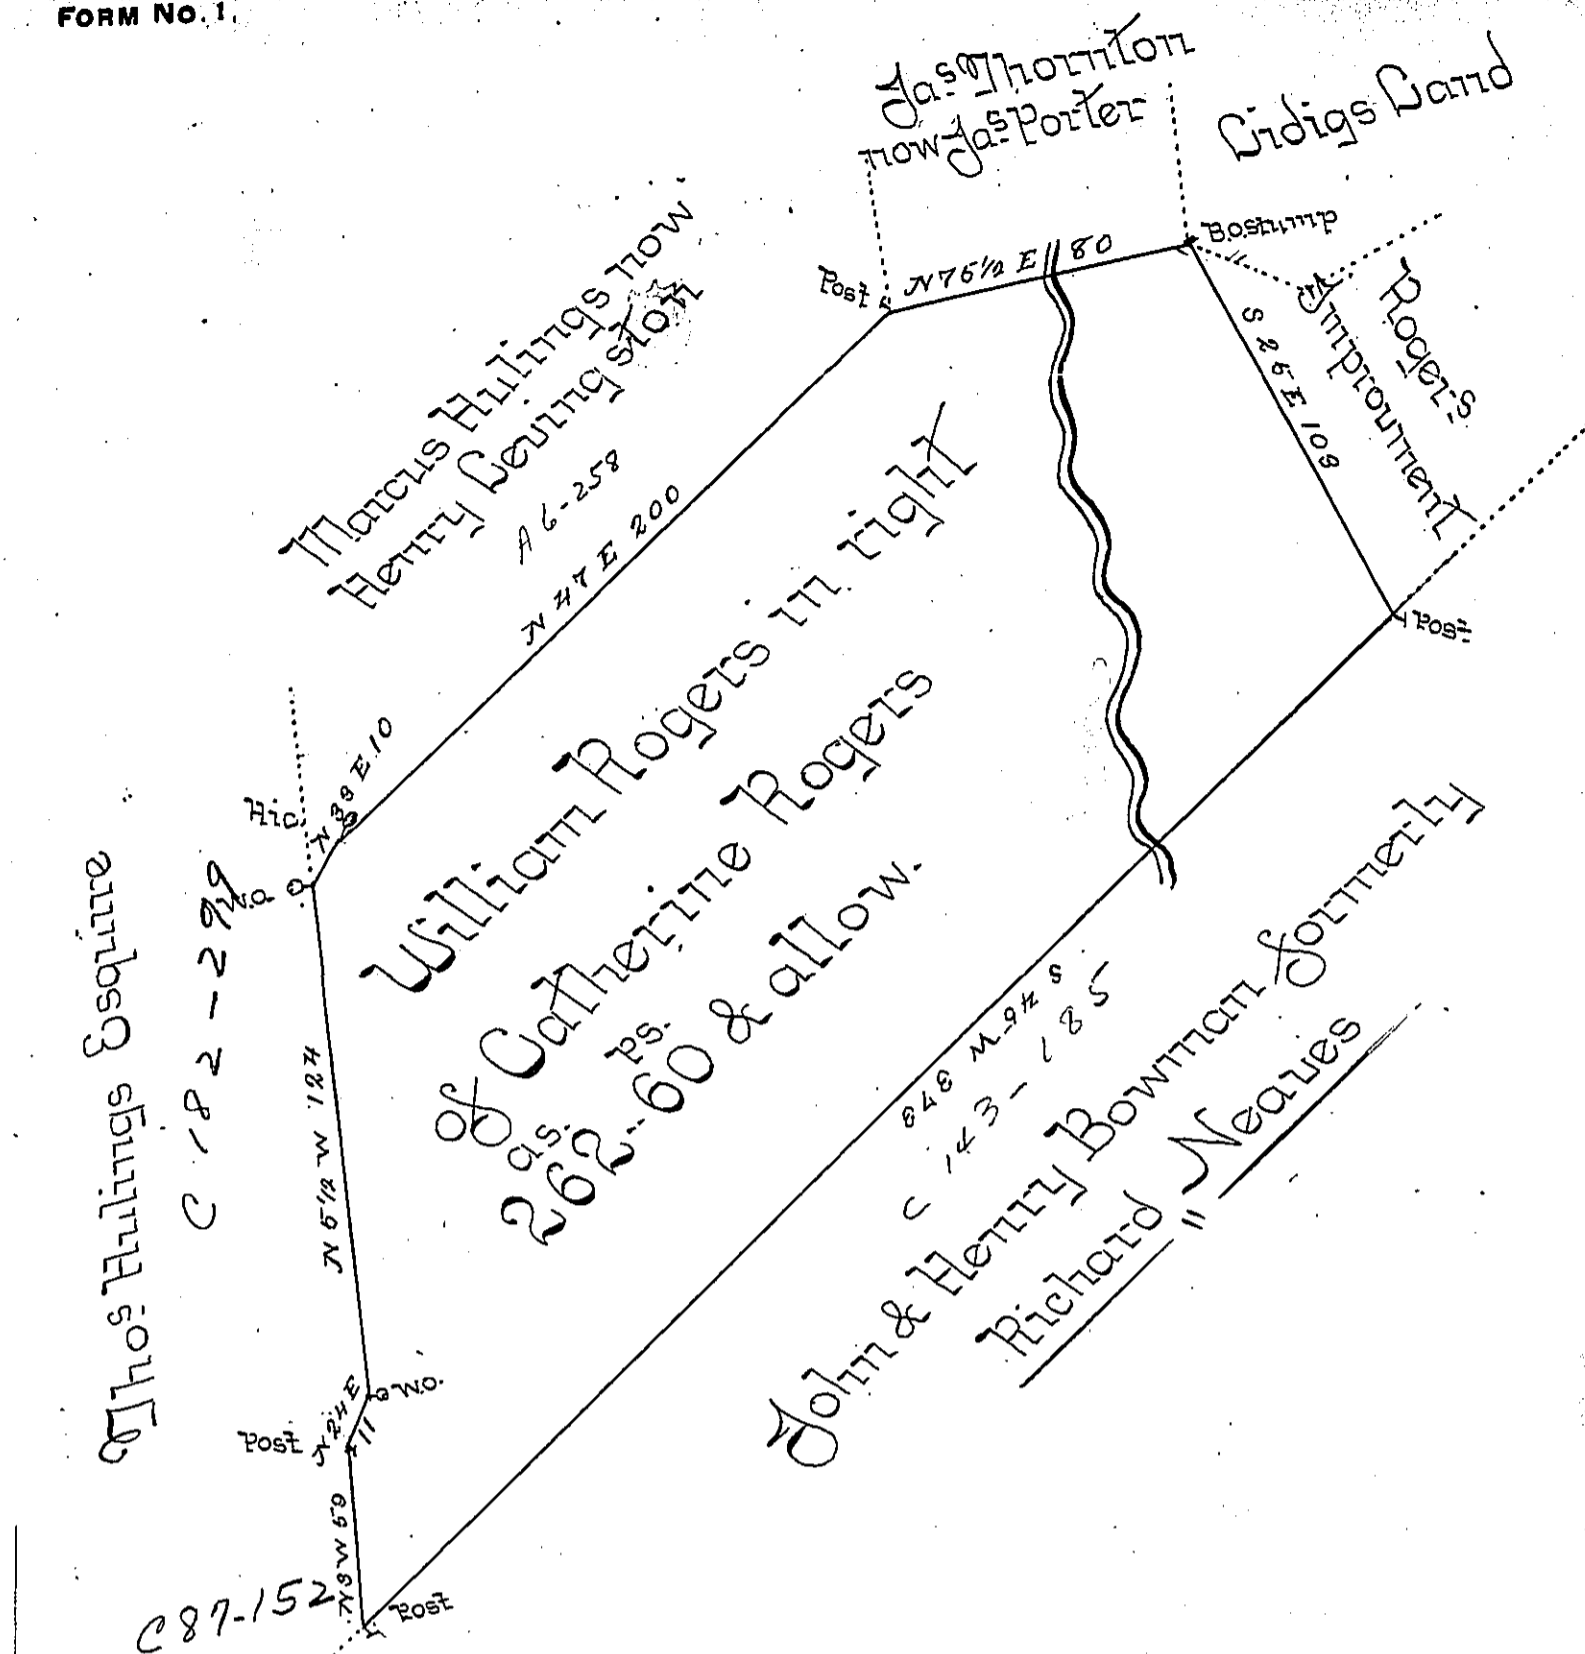 FORM No. 1.
Jas Thornton
now Jas Porter
Lidigs Land
B.O. stump
Post
N 76½ E 80
Rogers
Improvment
S 26 E 109
Post
Marcus Hulings now
Henry Levingston
A 6-258
N 47 E 200
N 39 E 10
Hic.
W.O.
Thos Hulings Esquire
C 182-299
William Rogers in right
of Catherine Rogers
as. ps.
262-60 & allow.
N 5½ W 124
S 46 W 373
C 143-185
John & Henry Bowman formerly
Richard " Neaves
W.O.
N 24 E
11
Post
N 3 W 59
C87-152
Post